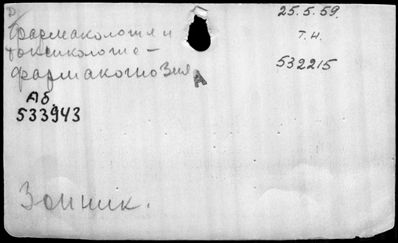 25.5.59.
Фармакология и
т.н.
токсикология -
фармакогнозия
532215
А
Аб
533943
Зонник.